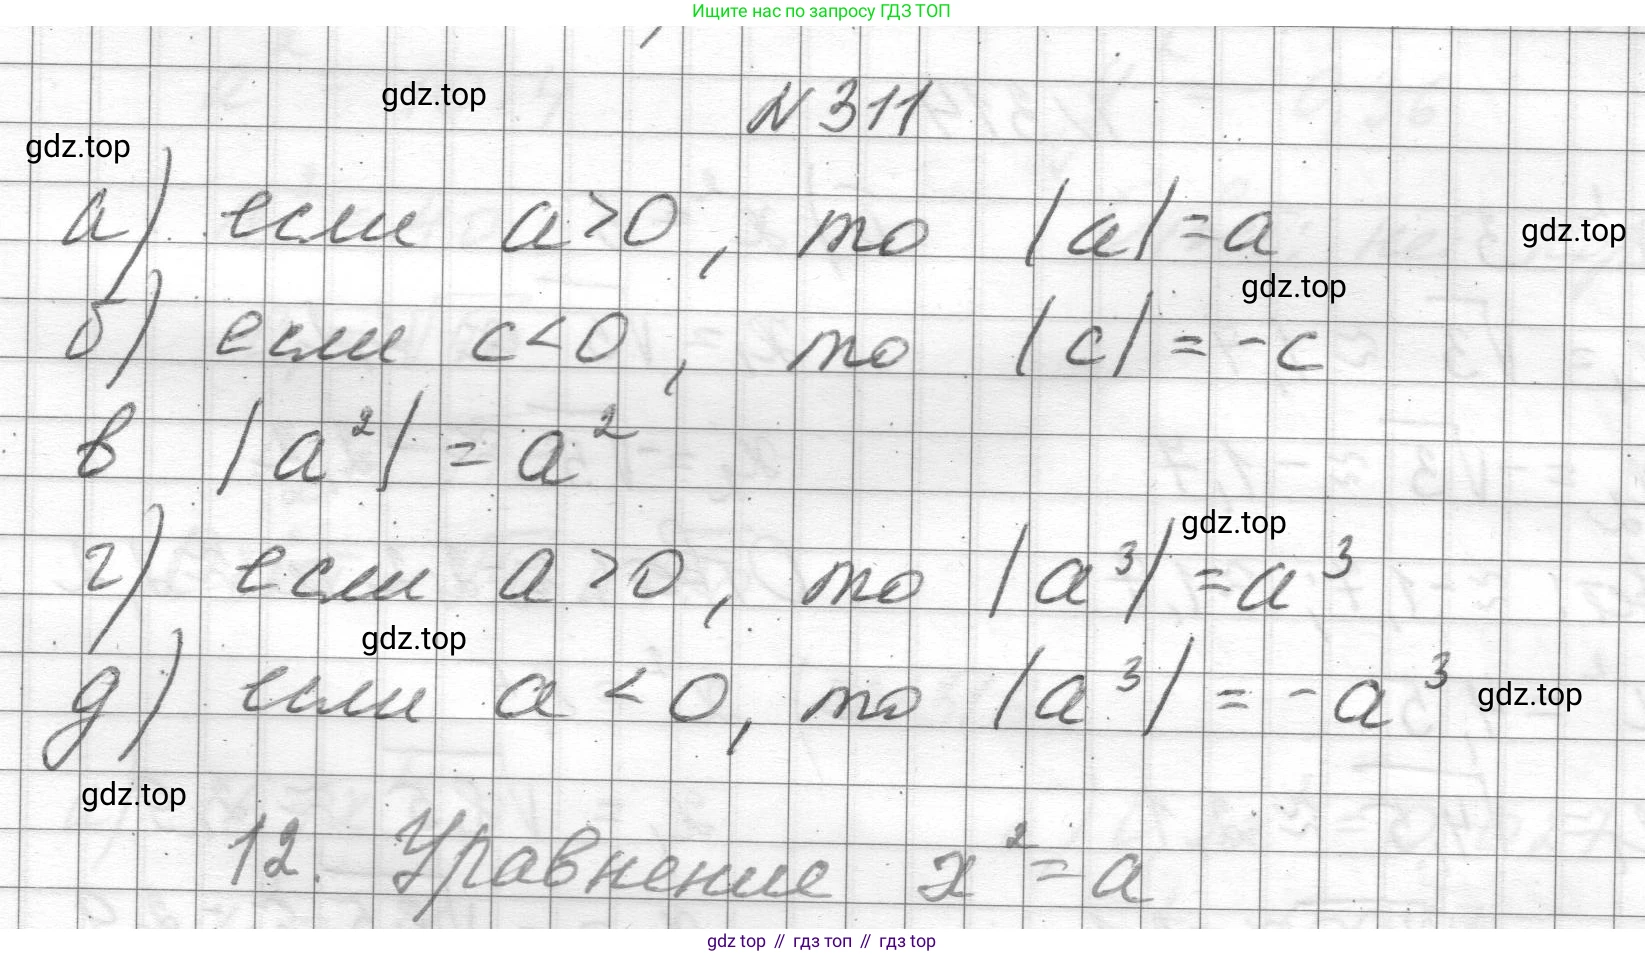 Ищите нас по запросу ГДЗ ТОП
gdz.top
N 311
gdz.top
а) если a>0, то |a|=a
gdz.top
gdz.top
б) если c<0, то |c|=-c
в |a²|=a²
gdz.top
г) если a>0, то |a³|=a³
gdz.top
д) если a<0, то |a³|=-a³
gdz.top
gdz.top
12. Уравнение x²=a
gdz top // гдз топ // гдз top